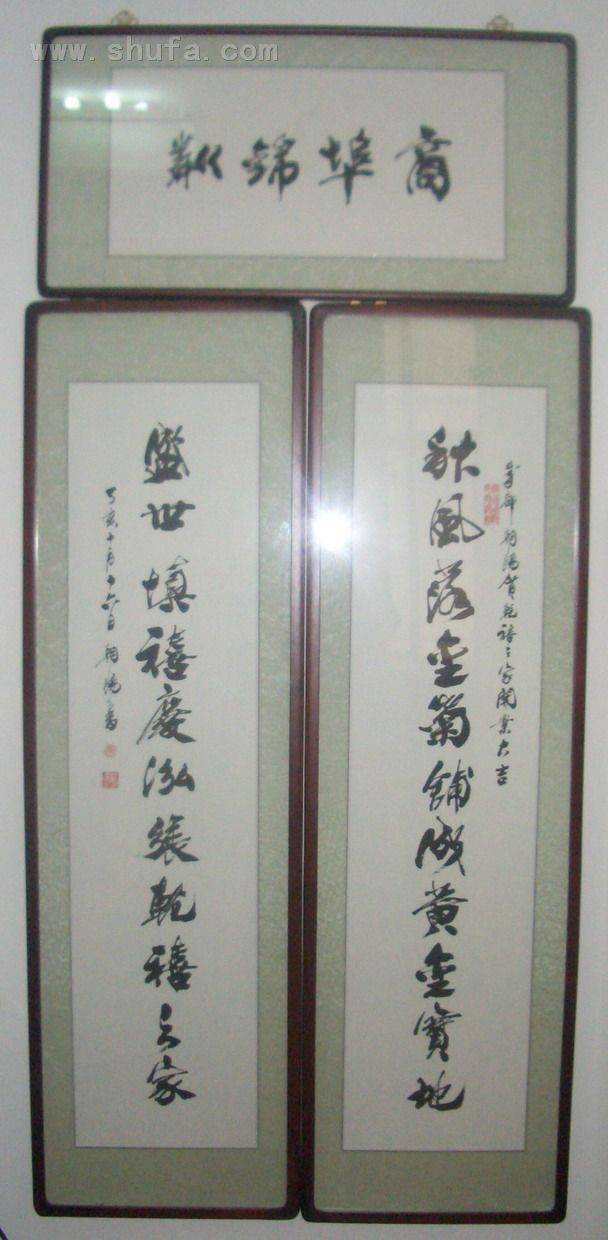 www.shufa.com
商埠錦
秋風落金菊鋪成黃金寶地
賀乾禧之家開業大吉
盛世填禧慶泓張乾禧之家
丁亥十月十六日